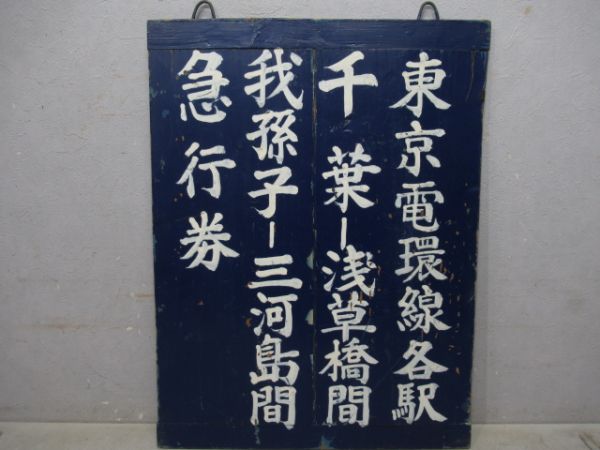 東京電環線各駅
千葉ー浅草橋間
我孫子ー三河島間
急行券